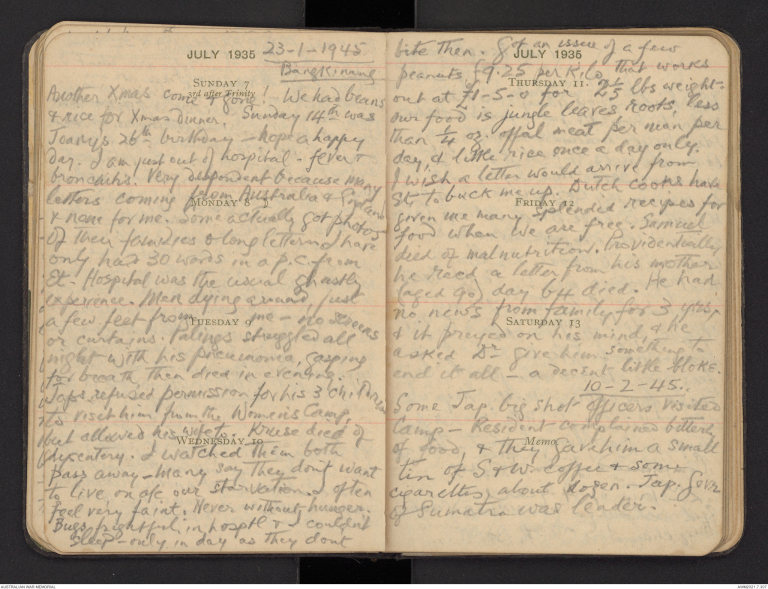 JULY 1935 23-1-1945
SUNDAY 7 Bangkinang
3rd after Trinity
Another Xmas come & gone! We had beans
& rice for Xmas dinner. Sunday 14th was
Joany's 26th birthday - hope a happy
day. I am just out of hospital - fever &
bronchitis. Very despondent because many
letters coming from Australia & England
MONDAY 8
& none for me. Some actually got photos
of their families & long letters. I have
only had 30 words in a p.c. from
Et. Hospital was the usual ghastly
experience. Men dying around just
a few feet from me - no screens
TUESDAY 9
or curtains. Palings struggled all
night with his pneumonia, gasping
for breath, then died in evening.
Japs refused permission for his 3 children
to visit him from the Womens Camp,
but allowed his wife to. Kruse died of
WEDNESDAY 10
dysentery. I watched them both
pass away - many say they dont want
to live on afr our starvation. I often
feel very faint. Never without hunger.
Bugs frightful in hosptl & couldnt
sleep - only in day as they dont
JULY 1935
bite then. Got an issue of a few
peanuts ƒ9.25 per kilo that works
THURSDAY 11
out at £1-5-0 for 2⅕ lbs weight.
our food is jungle leaves roots, less
than ¼ oz. offal meat per man per
day, & little rice once a day only.
I wish a letter would arrive from
Et to buck me up. Dutch cooks have
FRIDAY 12
given me many splendid recipes for
food when we are free. Samuel
died of malnutrition. Providentially
he recd a letter from his mother
(aged 90) day b4 died. He had
no news from family for 3 yrs,
SATURDAY 13
& it preyed on his mind, & he
asked Dr give him something to
end it all - a decent little bloke.
10-2-45.
Some Jap. big shot officers visited
Camp - Resident complained bitterly
Memo.
of food, & they gave him a small
tin of S & W coffee & some
cigarettes, about dozen. Jap. Govr
of Sumatra was leader.
AUSTRALIAN WAR MEMORIAL